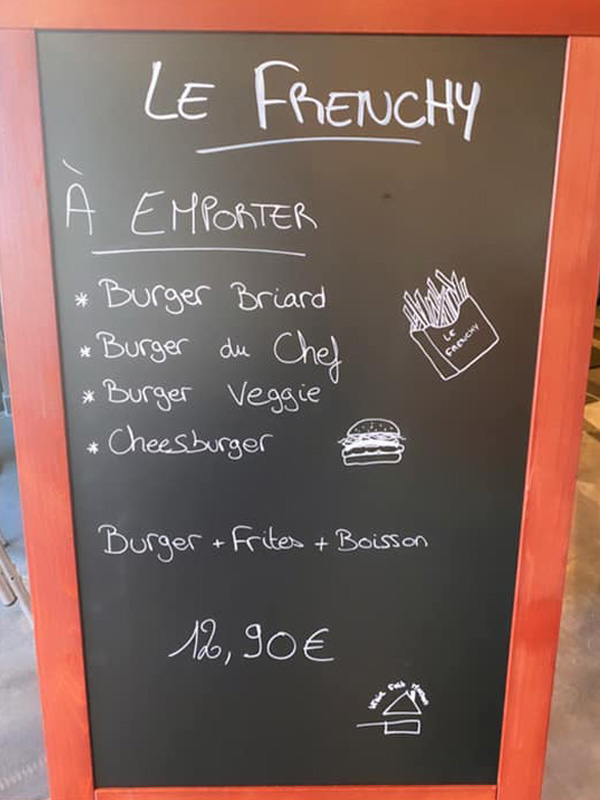 LE FRENCHY
À EMPORTER
* Burger Briard
* Burger du Chef
* Burger Veggie
* Cheesburger
LE
FRENCHY
Burger + Frites + Boisson
12,90€
fait maison